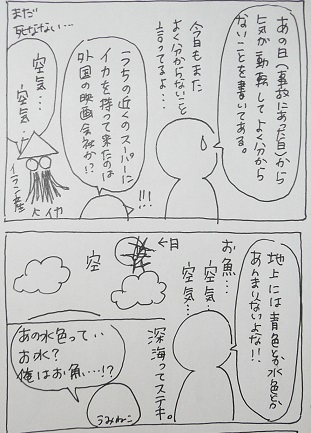 あの日(事故にあった日)から
気が動転してよく分から
ないことを書いてある。
今日もまた
よく分からないこと
言ってるよ…
うちの近くのスーパーに
イカを持って来たのは
外国の映画会社か!?
!!!
まだ
死なない…
空気…
空気…
地上には青色とか水色とか
あんまりないよな!!
お魚…
空気…
空気…
←月
空
深海ってステキ。
あの水色って…
お水?
俺はお魚…!?
うみねこ